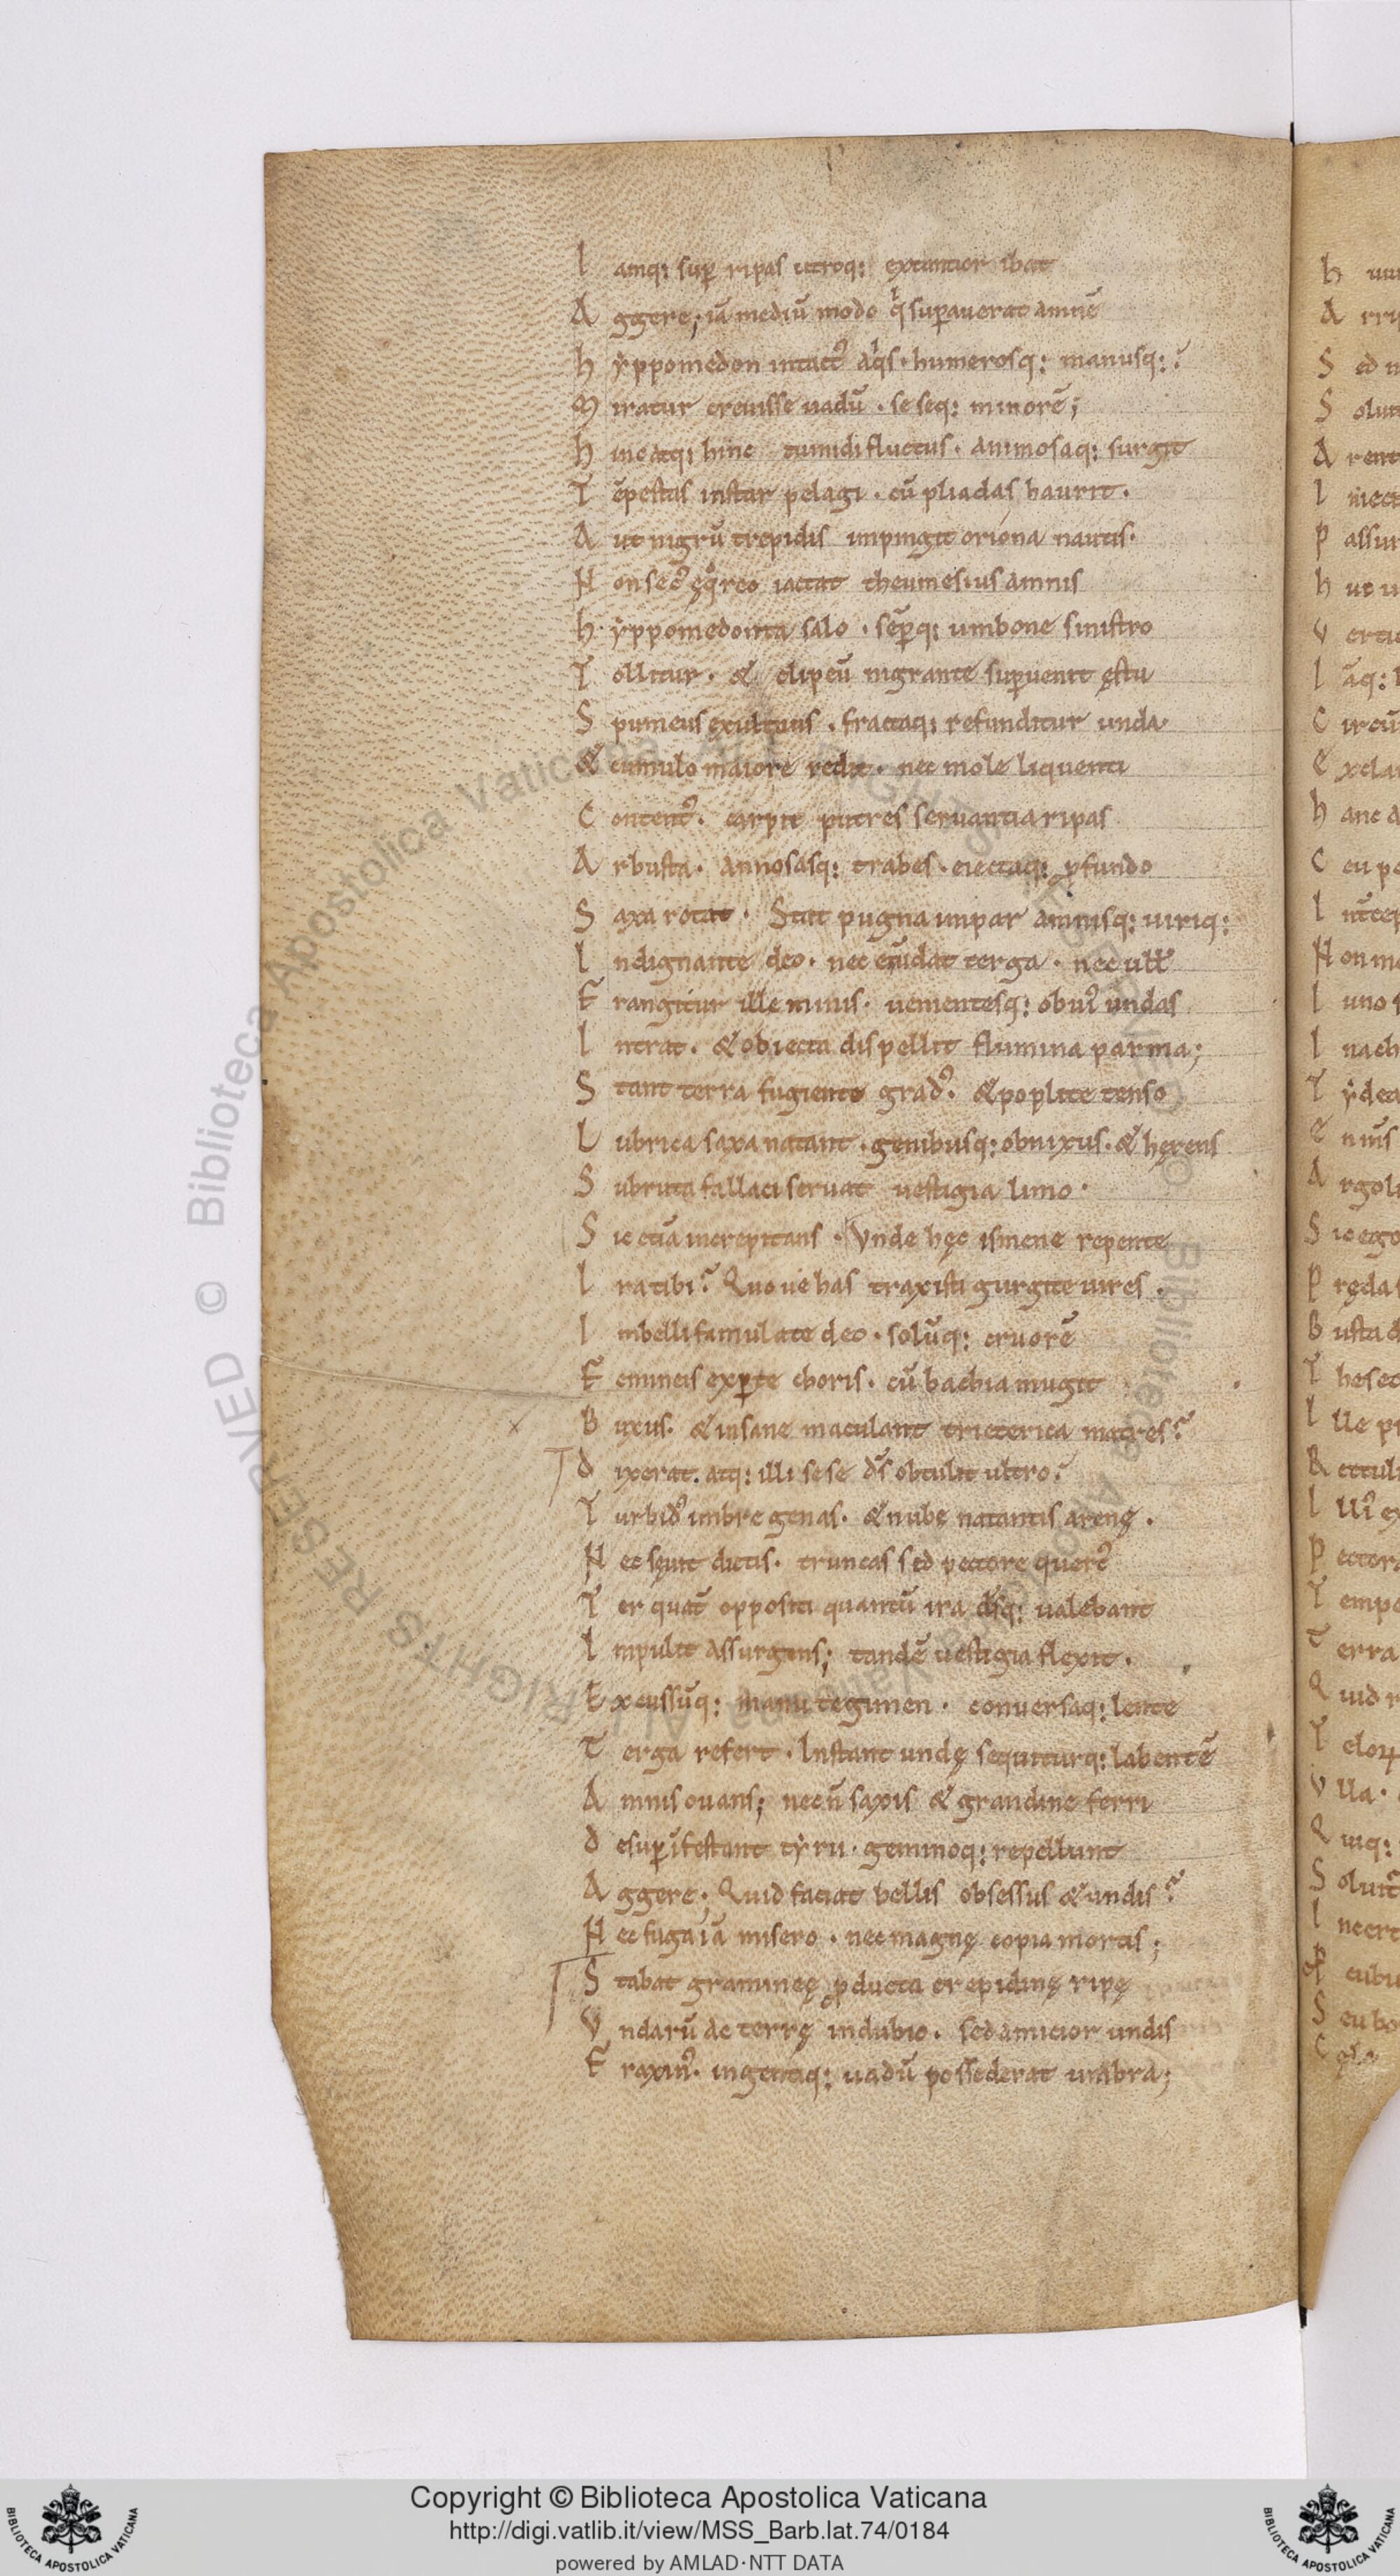 I amq: sup̄ ripas utroq: extantior ibat
A ggere; iā mediū modo qͥ sup̄auerat amnē
h ẏppomedon intactꝰ aqͥs · humerosq: manusq: ?
M iratur creuisse uadū · se seq: minorē;
h inc atq: hinc tumidi fluctus · animosaq: surgit
T ēpestas instar pelagi · cū pliadas haurit ·
A ut nigrū trepidis impingit oriona nautis ·
N on secꝰ ęqͦreo iactat theumesius amnis
h ẏppomedonta salo · sēp̄q: umbone sinistro
T ollitur · & clipeū nigrante sup̄uenit ęstu
S pumeus exultans · fractaq: refunditur unda
& cumulo maiore redit · nec mole liquenti
C ontentꝰ · carpit putres seruantia ripas
A rbusta · annosasq: trabes · eiectaq: ꝓfundo
S axa rotat · Stat pugna impar amnisq: uiriq:
I ndignante deo · nec enī dat terga · nec ullꝭ
F rangitur ille minis · uenientesq: obuiꝰ undas
I ntrat · & obiecta dispellit flumina parma;
S tant terra fugiente gradꝰ · & poplite tenso
L ubrica saxa natant · genibusq: obnixus · & hęrens
S ubruta fallaci seruat uestigia limo ·
S ic etiā increpitans · Vnde hęc ismene repente
I ra tibi? Quo ue has traxisti gurgite uires ·
I mbelli famulate deo · solūq: cruorē
F emineis exp̄te choris · cū bachia mugit
B uxus · & insane maculant trieterica matres?
D ixerat · atq: illi sese dꝰs obtulit ultro ·
T urbidꝰ imbre genas · & nube natantis arenę ·
N ec sęuit dictis · truncas sed pectore quercꝰ
T er quat̄ oppositi quantū ira dsq: ualebant
I npulit assurgens; tandē uestigia flexit ·
E xcussūq: manu tegimen · conuersaq: lente
T erga refert · Instant undę sequiturq: labentē
A mnis ouans; necn̄ saxis & grandine ferri
D esup̄ ifestant tẏrii · geminoq: repellunt
A ggere; Quid faciat bellis obsessus & undis?
N ec fuga iā misero · nec magnę copia mortis;
S tabat gramineę ꝓducta crepidinę ripę
V ndarū ac terrę in dubio · sed amicior undis
F raxinꝰ · ingentiq: uadū possederat umbra;
© Biblioteca Apostolica Vaticana ALL RIGHTS RESERVED
Copyright © Biblioteca Apostolica Vaticana
http://digi.vatlib.it/view/MSS_Barb.lat.74/0184
powered by AMLAD·NTT DATA
BIBLIOTECA APOSTOLICA VATICANA
BIBLIOTECA APOSTOLICA VATICANA